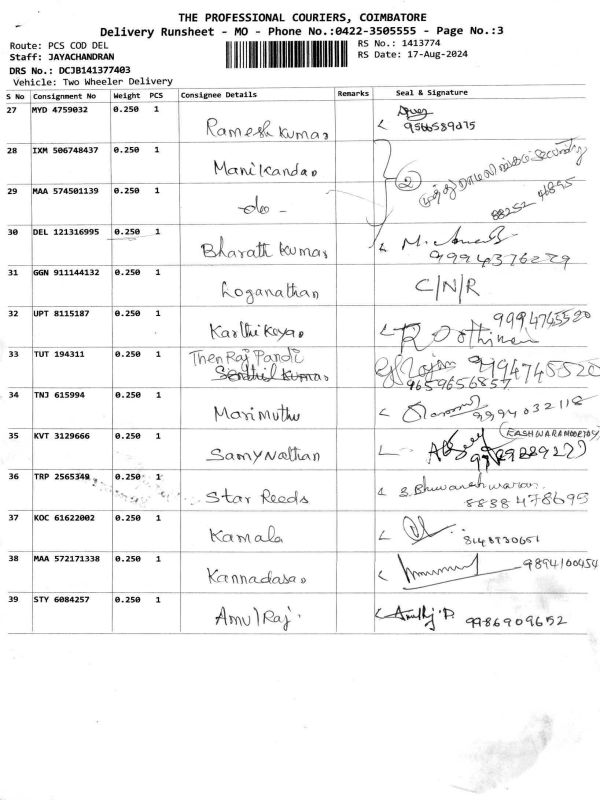 THE PROFESSIONAL COURIERS, COIMBATORE
Delivery Runsheet - MO - Phone No.:0422-3505555 - Page No.:3
Route: PCS COD DEL RS No.: 1413774
Staff: JAYACHANDRAN RS Date: 17-Aug-2024
DRS No.: DCJB141377403
Vehicle: Two Wheeler Delivery
S No Consignment No Weight PCS Consignee Details Remarks Seal & Signature
27 MYD 4759032 0.250 1 Ramesh Kumar 9566589075
28 IXM 506748437 0.250 1 Manikandan 2
29 MAA 574501139 0.250 1 -do- 88252 46895
30 DEL 121316995 0.250 1 Bharath Kumar 9994376279
31 GGN 911144132 0.250 1 Loganathan C/N/R
32 UPT 8115187 0.250 1 Karthikeyan 9994745520
33 TUT 194311 0.250 1 ThenRaj Pandi 9194745520
Senthil Kumar 9659656857
34 TNJ 615994 0.250 1 Marimuthu 9994032118
35 KVT 3129666 0.250 1 Samynathan
36 TRP 2565349 0.250 1 Star Reeds S. Bhuvaneshwaran
8838478695
37 KOC 61622002 0.250 1 Kamala 8148730651
38 MAA 572171338 0.250 1 Kannadasan 9894100454
39 STY 6084257 0.250 1 Amul Raj 9786909652